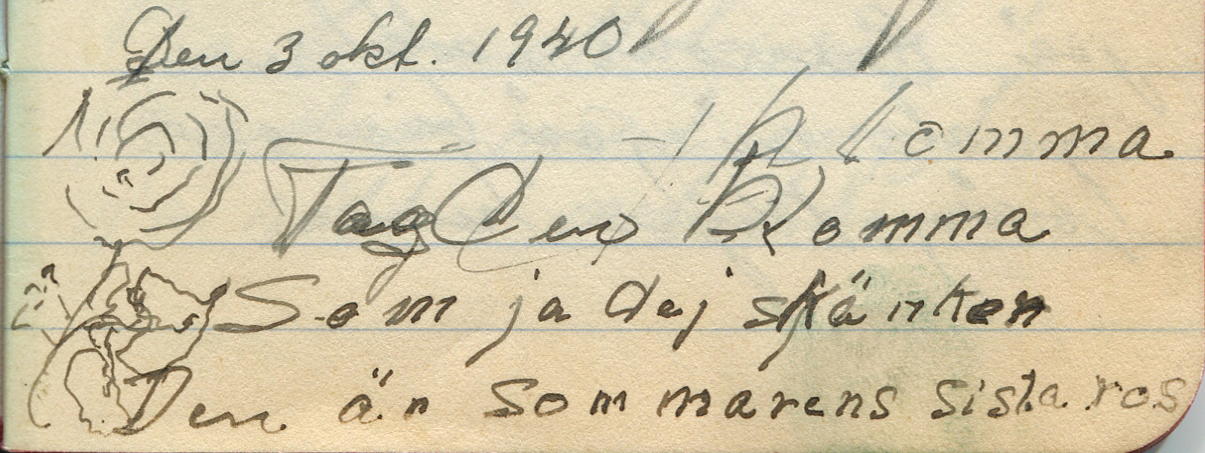 Den 3 okt. 1940
Blomma
Tag Den Blomma
Som ja dej skänker
Den är sommarens sista ros